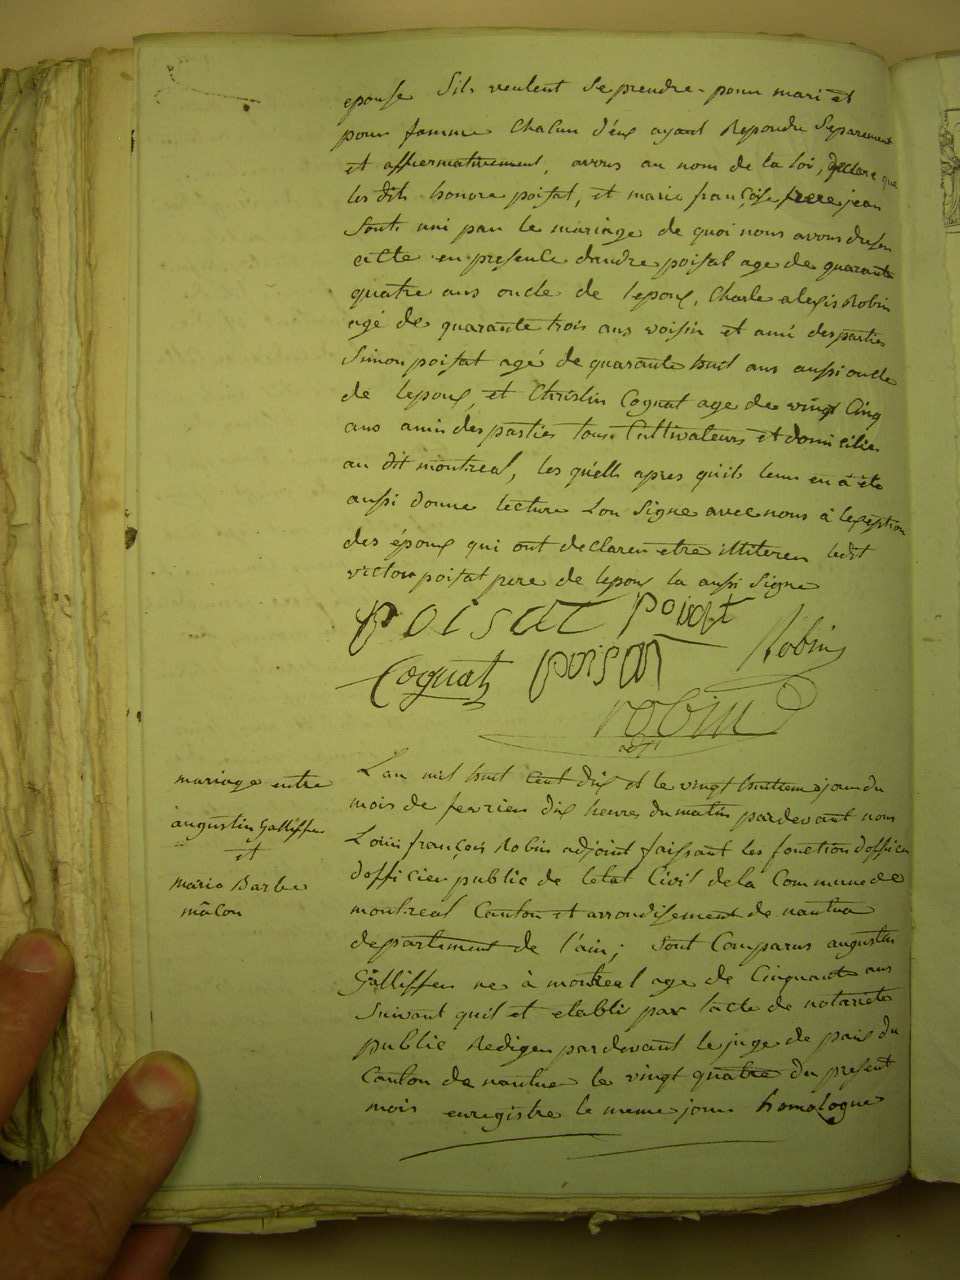 epouse Sils veulent Se prendre pour mari et
pour famme Chacun d'éux ayant Repondu Separement
et affirmativement, avons au nom de la loi, declare que
les dits honore poisat, et marie françoise jean
Sont uni par le mariage de quoi nous avons dressé
acte en presence dandre poisat age de quarante
quatre ans oncle de lepoux, Charle alexis Robin
agé de quarante trois ans voisin et ami des parties
Simon poisat agé de quarante huit ans aussi oncle
de lepoux, et Christin Cognat age de vingt Cinq
ans amis des parties tous Cultivateurs et domicilies
au dit montreal, les quells apres quils leur en à été
aussi donne lecture Lon Signe avec nous à lexeption
des époux qui ont declaren etre illiteren ledit
victor poisat pere de lepoux la aussi Signe
poisat poisat
Robin
Cognat poisat
robin
adjt
mariage entre
àugustin Galliffer
et
marie Barbe
mâcon
Lan mil huit Cent dix et le vingt huitieme jour du
mois de fevrier dix heures du matin pardevant nous
Louis françois Robin adjoint faissant les fonction dofficier
dofficier public de letat Civil de la Commune de
montreal Canton et arrondissement de nantua
departement de l'ain; Sont Comparus augustin
Galliffer ne à montreal age de Cinquante ans
Suivant quil et etabli par lacte de notariete
public Rediger pardevant le juge de paix du
Canton de nantua le vingt quatre du present
mois enregistre le meme jour homologue